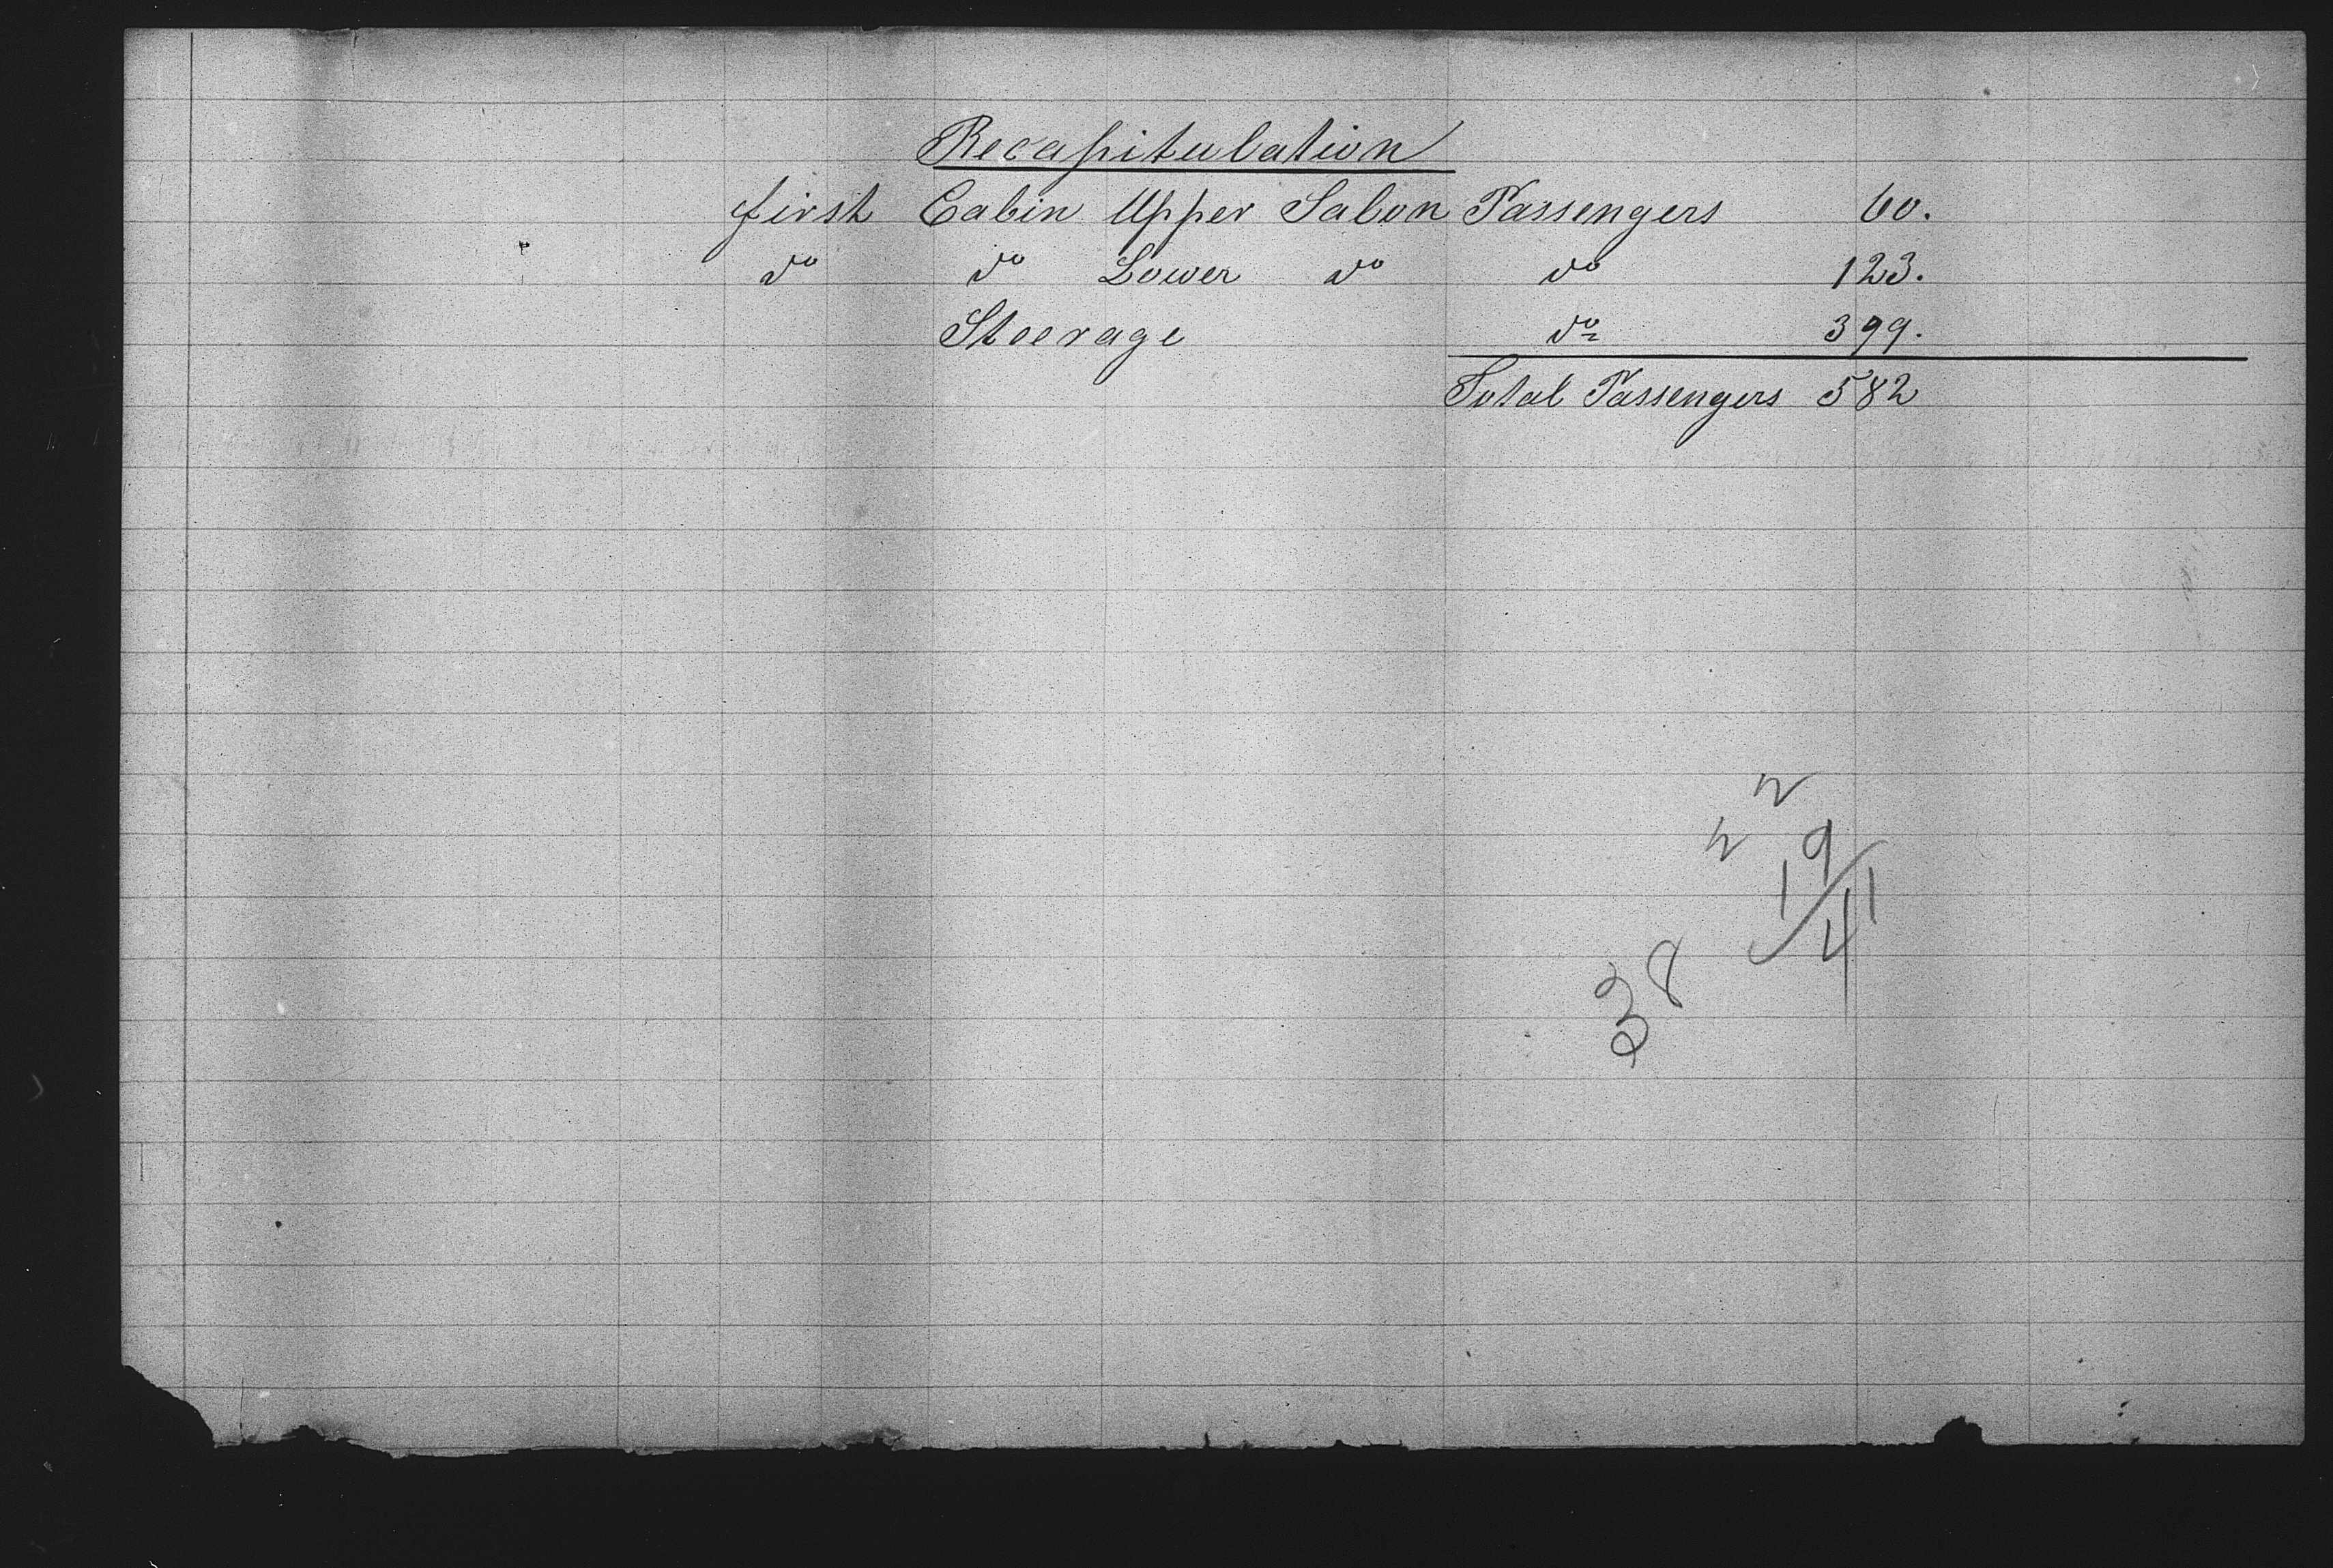 Recapitulation
first Cabin Upper Salon Passengers 60.
do do Lower do do 123.
Steerage do 399.
Total Passengers 582
19/41
38